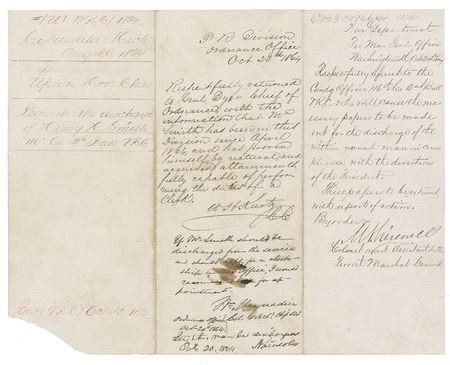 Coldwater Mich
Aug 26 1864
Upson Con Chas
Requests the discharge
of Henry A. Smith
116" Co 2" Batt V.R.C.
Oct 20 1864
P R Division
Ordnance Office
Oct 20th 1864
Respectfully returned
to Genl Dyer Chief of
Ordnance with the
information that Mr
Smith has been in this
Division since April
1864, and has proven
himself by natural and
acquired attainments
fully capable of perfor
ming the duties of a
Clerk.
If Mr Smith should be
discharged from the service
and should for a clerk-
ship in Office, I would
for ap
pointment.
Wm Maynadier
Ordnance Office
Oct 20th 1864.
Let this man be discharged
Oct 20, 1864 A. Lincoln
War Department
Pro Mar Genls Office
Washington D.C.
Respectfully referred to the
Comdg Officer 116" Co 2" Batt
V.R.C. who will cause the neces
sary papers to be made
out for the discharge of the
within named man in com
pliance with the direction
of the President
These papers to be returned
with report of action.
By order
Colonel and Assistant to the
Provost Marshal General